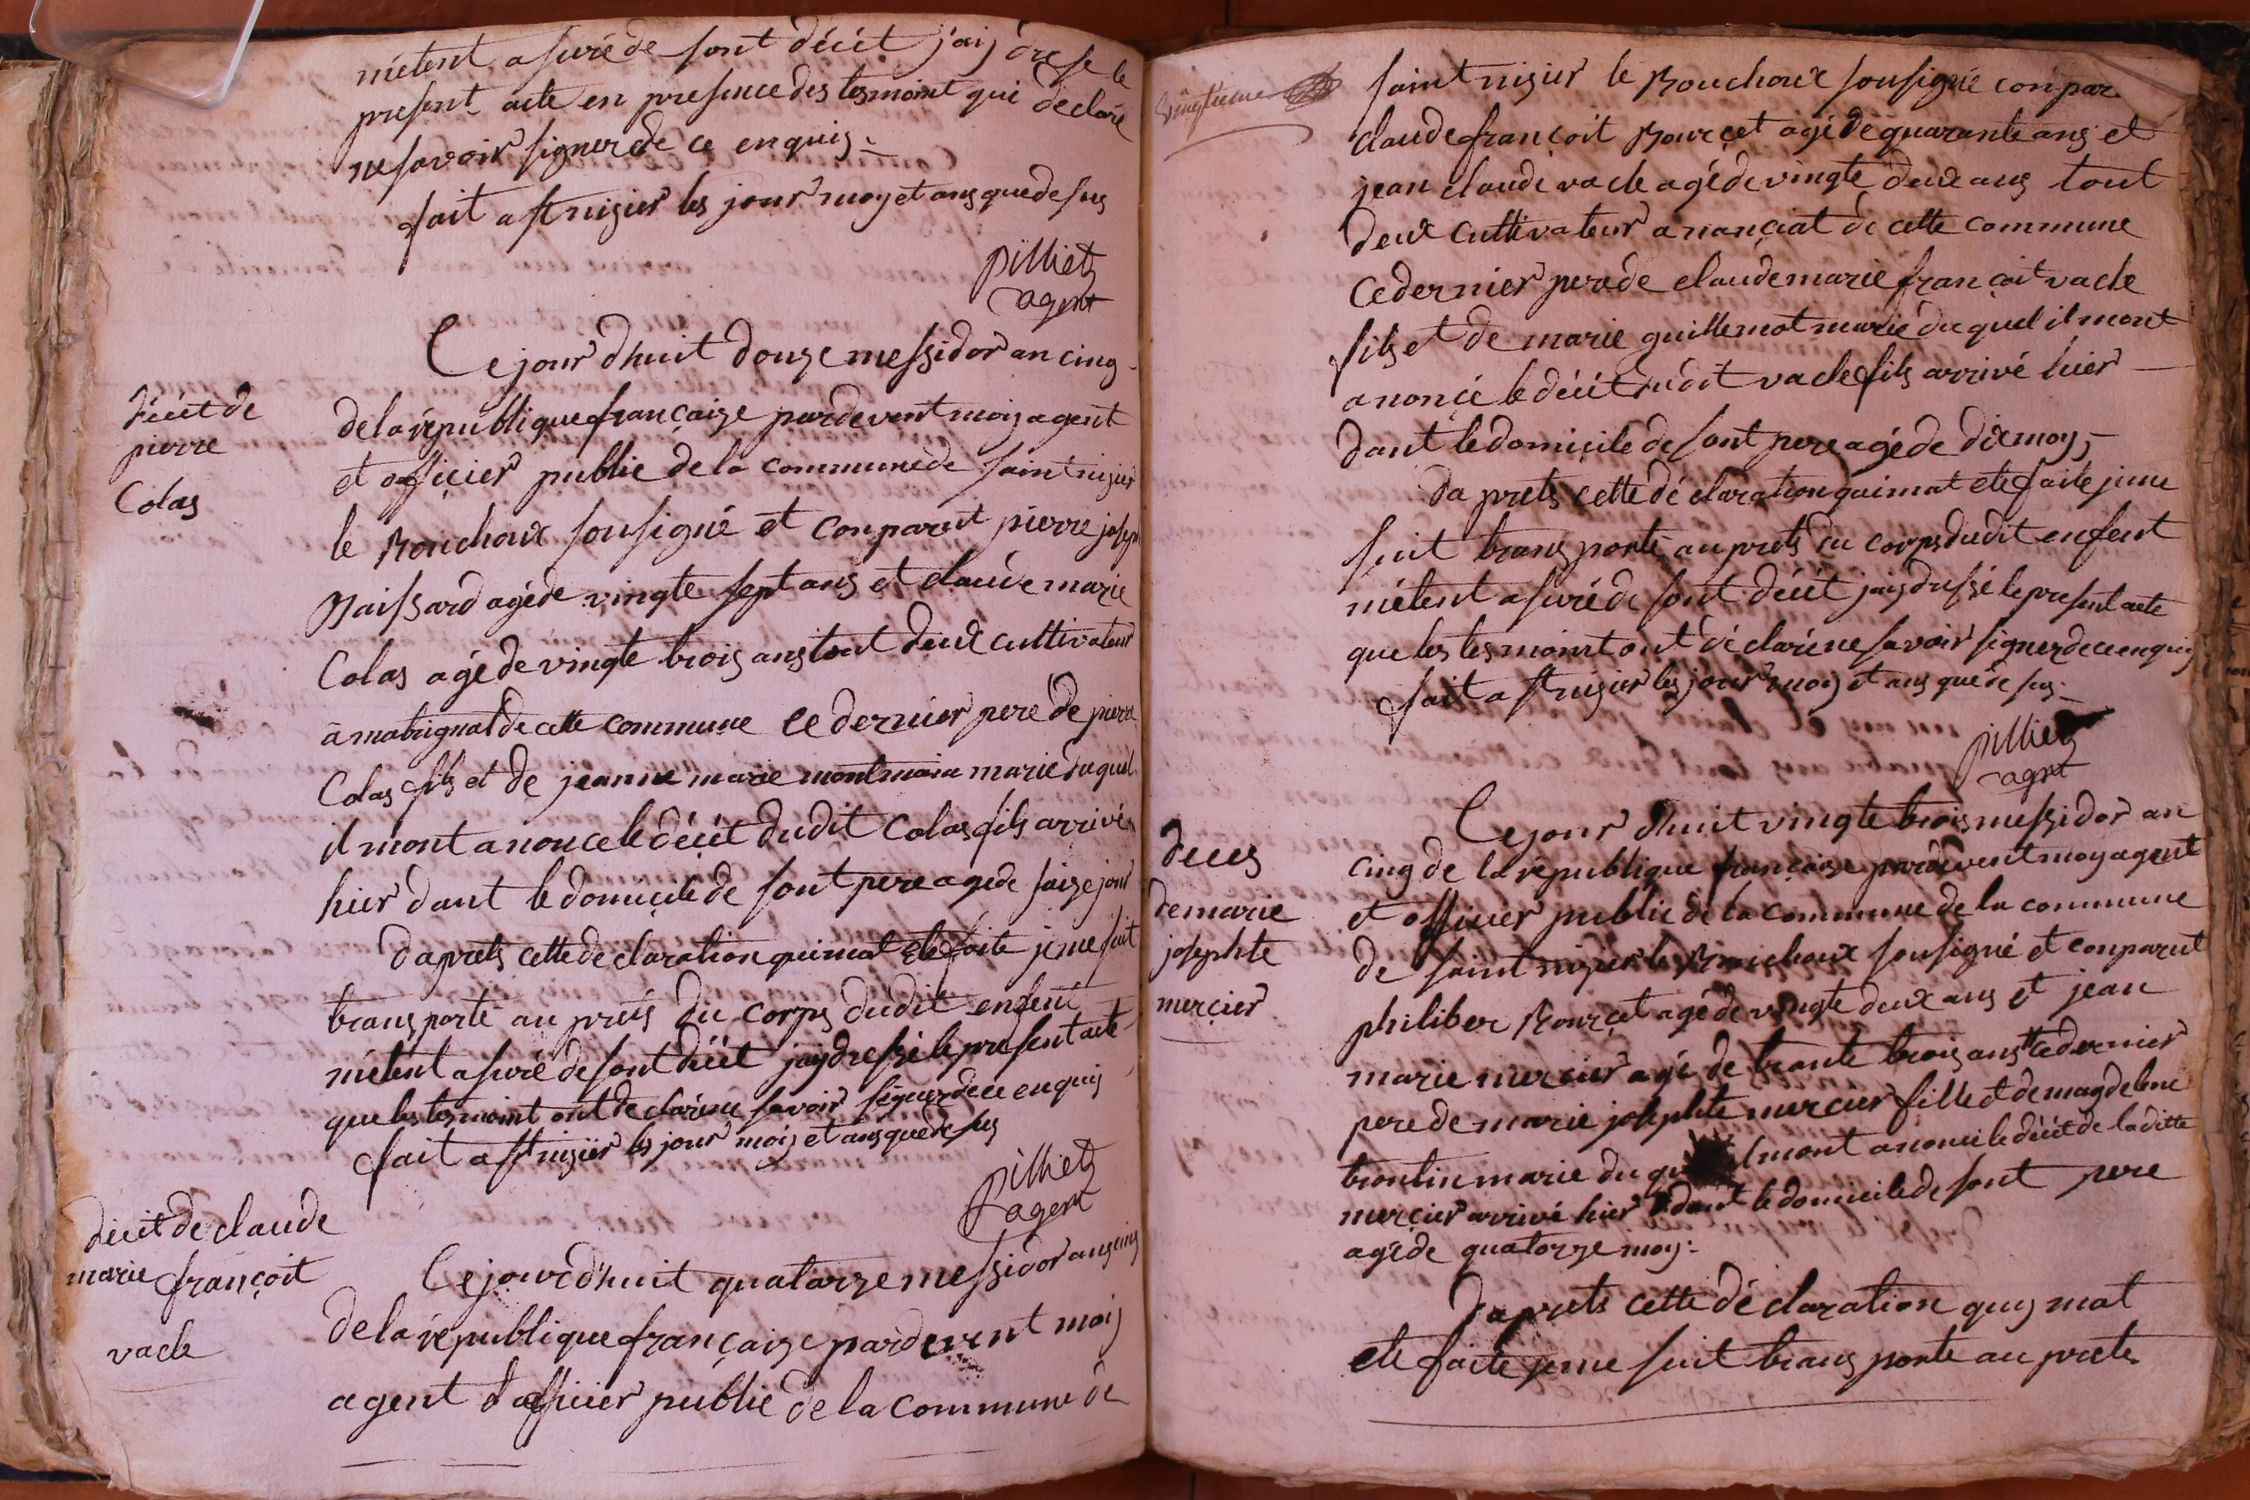 mètent asuré de sont décit j'aij dressé le
present acte en presence des tesmoint qui déclare
ne savoir signer de ce enquis
fait a st nisier les jour moy et ans que de sus
pilliet
agent
Ce jour dhuit douze messidor an cinq
décit de
pierre
Colas
de la république françaize pardevent moij agent
et officier public de la commune de saint nisier
le Bouchoux sousigné et conparut pierre joseph
Naissard agé de vingte sept ans et claude marie
Colas agé de vingte trois ans tout deux cultivateur
a matrignat de cette commune ce dernier pere de pierre
Colas fils et de jeanne marie montmain marie du quel
il mont anonce le décit dudit Colas fils arrivé
hier dant le domicile de sont pere agé de saize jour
daprets cette déclaration qui mat ete faite je me suit
transporté au prés du corps dudit enfent
métent asuré de sont décit jaij dressé le present acte
que les tesmoint ont déclaré ne savoir signer de ce enquis
fait a st nisier les jour mois et ans que de sus
pilliet
agent
décit de claude
marie françoit
vacle
Ce jourdhuit quatorze messidor ans cinq
de la république françaize pardevent moij
agent et officier public de la commune de
vingtieme
saint nisier le Bouchoux sousigné conpar
claude françoit Bourcet agé de quarante ans et
jean claude vacle agé de vingte deux ans tout
deux cultivateur a nanciat de cette commune
ce dernier pere de claude marie françoit vacle
fils et de marie guillemot marié du quel il mont
anoncé le décit dudit vacle fils arrivé hier
dant le domicile de sont pere agé de dix moy
da prets cette déclaration qui mat ete faite je me
suit transporté au prets du corps dudit enfent
métent asuré de sont décit jaij dressé le present acte
que les tesmoint ont déclaré ne savoir signer de ce enquis
fait a st nisier les jour moij et ans que de sus
pilliet
agent
Ce jour dhuit vingte trois messidor an
deces
de marie
josephte
mercier
cinq de la république françoize pardevent moy agent
et officier public de la commune de la commune
de saint nisier le Bouchoux sousigné et conparut
philiber Bourcet agé de vingte deux ans et jean
marie mercier agé de trante trois ans ce dernier
pere de marie josephte mercier fille et de magdelene
trontin marie du mont anoncé le décit de la ditte
mercier arrivé hier dant le domicile de sont pere
agé de quatorze moy
da prets cette déclaration quy mat
ete faite je me suit transporté au prets